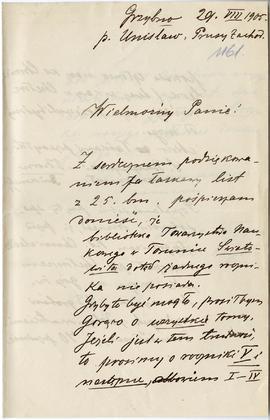 Grzybno 29. VIII 1905.
p. Unisław, Prusy Zachod.
1161.
Wielmożny Panie!
Z serdecznem podziękowa-
niem za łaskawy list
z 25. bm. pośpieszam
donieść, że
biblioteka Towarzystwa Nau-
kowego w Toruniu
dotąd żadnego roczni-
ka nie posiada.
Gdyby to być mogło, prosiłbym
gorąco o wszystkie tomy.
Jeżeli jest w tem trudność,
to prosimy o roczniki V i
następne, I-IV